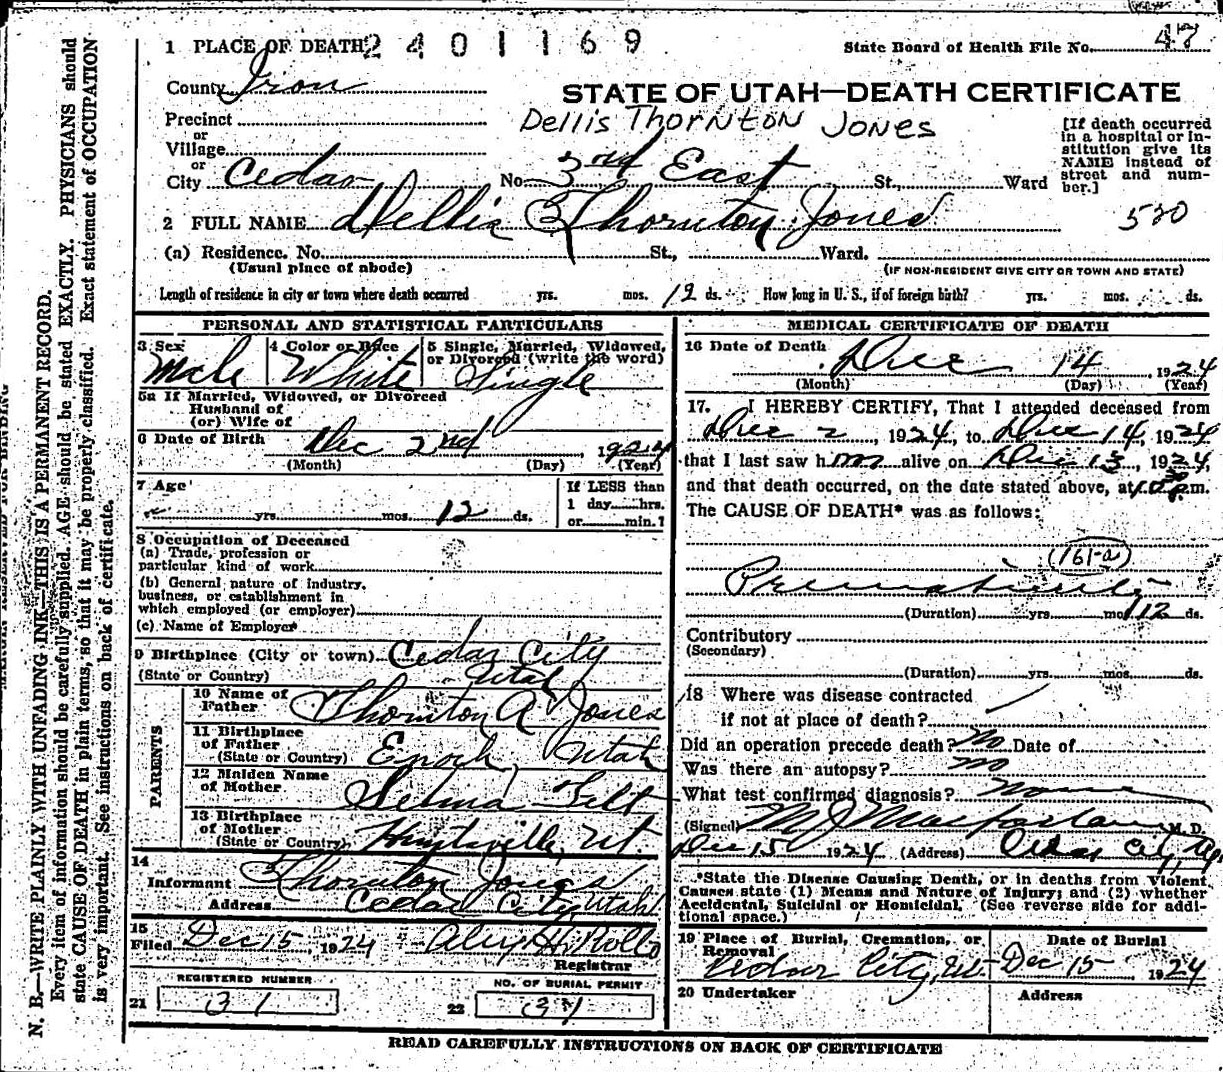 1 PLACE OF DEATH 2401169
State Board of Health File No. 47
County Iron
STATE OF UTAH—DEATH CERTIFICATE
Precinct
Dellis Thornton Jones
or
Village
or
City Cedar No. 3rd East St., Ward
[If death occurred
in a hospital or in-
stitution give its
NAME instead of
street and num-
ber.]
2 FULL NAME Dellis Thornton Jones
530
(a) Residence. No. St., Ward.
(Usual place of abode) (IF NON-RESIDENT GIVE CITY OR TOWN AND STATE)
Length of residence in city or town where death occurred yrs. mos. 12 ds. How long in U. S., if of foreign birth? yrs. mos. ds.
PERSONAL AND STATISTICAL PARTICULARS
3 Sex 4 Color or Race 5 Single, Married, Widowed,
or Divorced (write the word)
Male White Single
5a If Married, Widowed, or Divorced
Husband of
(or) Wife of
6 Date of Birth Dec 2nd, 1924
(Month) (Day) (Year)
7 Age If LESS than
1 day hrs.
yrs. mos. 12 ds. or min.?
8 Occupation of Deceased
(a) Trade, profession or
particular kind of work
(b) General nature of industry,
business, or establishment in
which employed (or employer)
(c) Name of Employer
9 Birthplace (City or town) Cedar City
(State or Country) Utah
PARENTS
10 Name of
Father Thornton A Jones
11 Birthplace
of Father
(State or Country) Enoch, Utah
12 Maiden Name
of Mother Selma Felt
13 Birthplace
of Mother
(State or Country) Huntsville, Ut.
14
Informant Thornton Jones
Address Cedar City, Utah
15
Filed Dec 15, 1924 Alex H. Rollo
Registrar
REGISTERED NUMBER NO. OF BURIAL PERMIT
21 31 22 31
MEDICAL CERTIFICATE OF DEATH
16 Date of Death Dec 14, 1924
(Month) (Day) (Year)
17. I HEREBY CERTIFY, That I attended deceased from
Dec 2, 1924, to Dec 14, 1924
that I last saw him alive on Dec 13, 1924,
and that death occurred, on the date stated above, at m.
The CAUSE OF DEATH* was as follows:
(161-a)
Prematurity
(Duration) yrs. mos. 12 ds.
Contributory
(Secondary)
(Duration) yrs. mos. ds.
18 Where was disease contracted
if not at place of death?
Did an operation precede death? No Date of
Was there an autopsy? No
What test confirmed diagnosis? None
(Signed) M J Macfarlane M. D.
Dec 15 1924 (Address) Cedar City,
*State the Disease Causing Death, or in deaths from Violent
Causes state (1) Means and Nature of Injury; and (2) whether
Accidental, Suicidal or Homicidal. (See reverse side for addi-
tional space.)
19 Place of Burial, Cremation, or Date of Burial
Removal
Cedar City, Ut. Dec 15 1924
20 Undertaker Address
READ CAREFULLY INSTRUCTIONS ON BACK OF CERTIFICATE
N. B.—WRITE PLAINLY WITH UNFADING INK—THIS IS A PERMANENT RECORD.
Every item of information should be carefully supplied. AGE should be stated EXACTLY. PHYSICIANS should
state CAUSE OF DEATH in plain terms, so that it may be properly classified. Exact statement of OCCUPATION
is very important. See instructions on back of certificate.